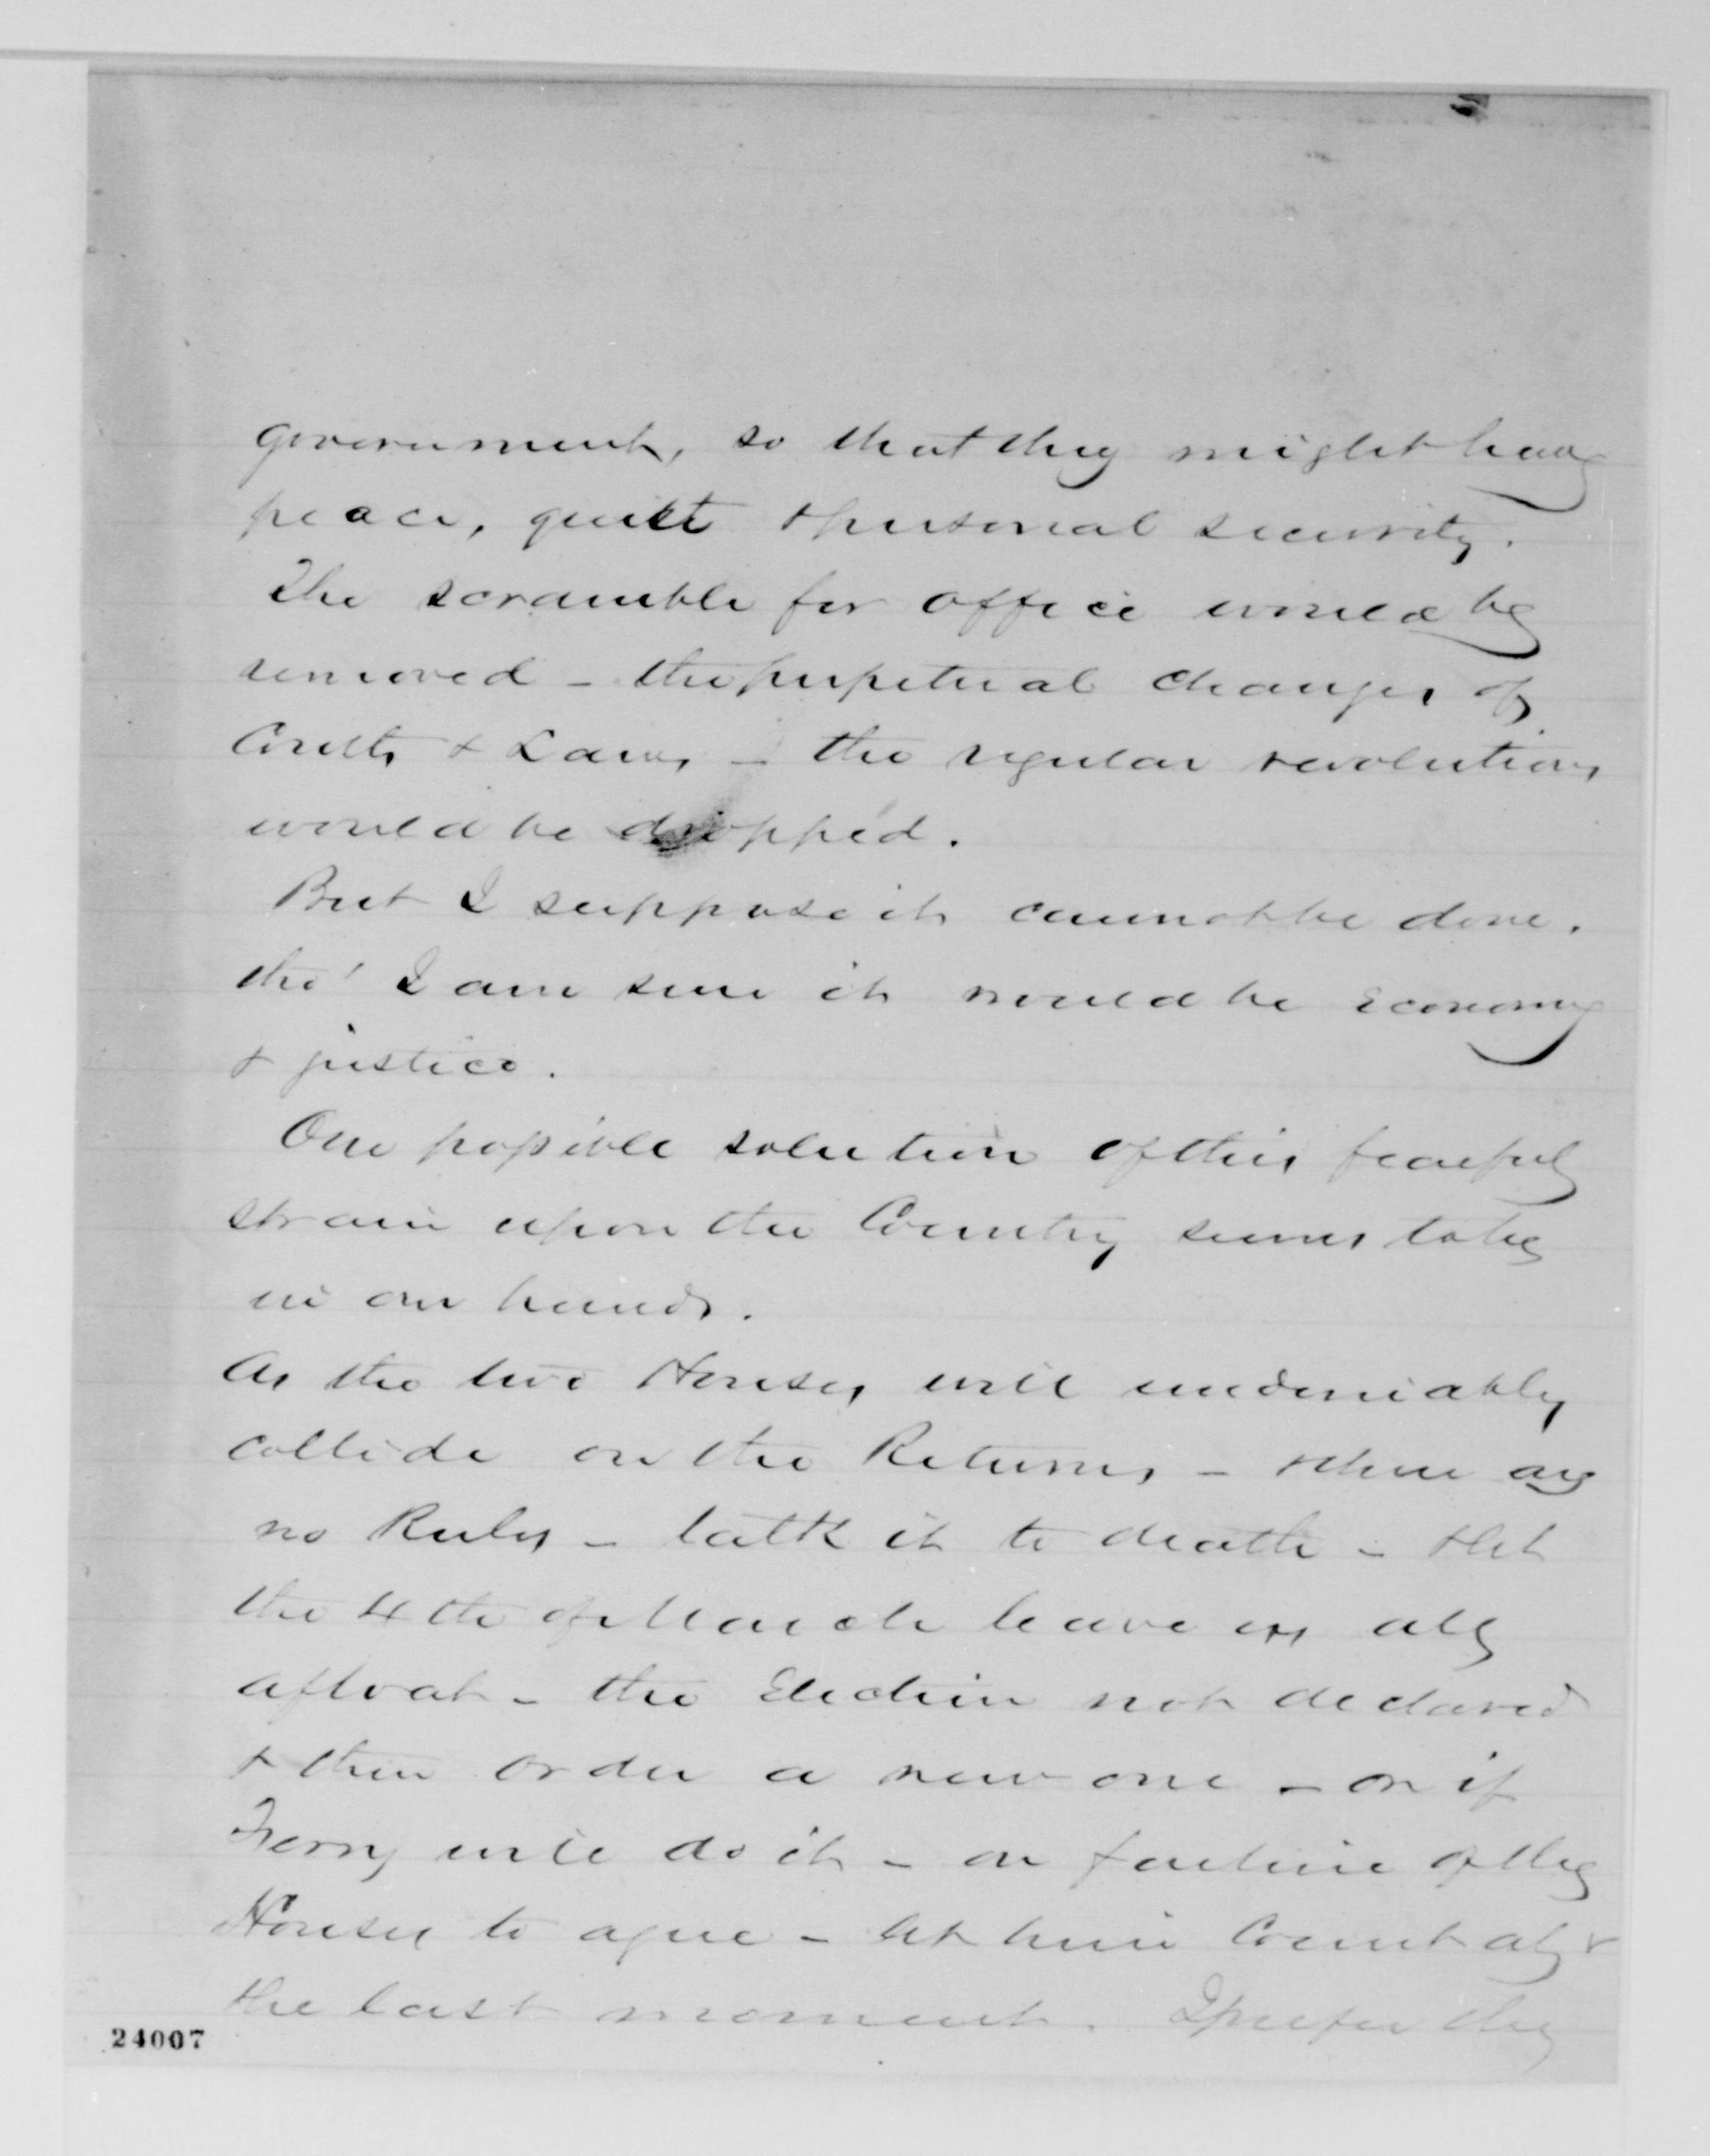 government, so that they might have
peace, quiet & personal security.
The scramble for office would be
removed - the perpetual changes of
Courts & Laws - the regular revolutions
would be dropped.
But I suppose it cannot be done.
tho' I am sure it would be economy
& justice.
One possible solution of this fearful
strain upon the Country seems to be
in our hands.
As the two Houses will undeniably
collide on the Returns - & there are
no Rules - talk it to death - & let
the 4th of March leave us all
afloat - the Election not declared
& then order a new one - or if
Ferry will do it - on failure of the
Houses to agree - let him Count at
the last moment. I prefer the
24007